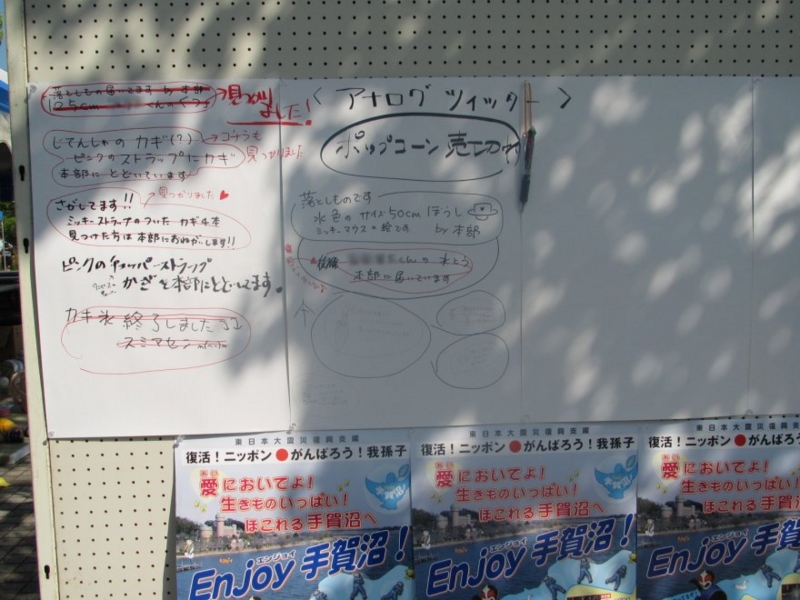 落としもの届いてます by 本部
125cm くんのくつ
見つかり
ました!
じてんしゃの カギ(?)
→ こちらも
見つかりました
ピンクのストラップにカギ
本部にとどいています
見つかりました♥
さがしてます!!
ミッキーストラップのついた カギ4本
見つけた方は本部におねがいします!!
ピンクのチョッパーストラップ
かぎを本部にとどいてます。
カキ氷 終了しました
スミマセン
< アナログ ツイッター >
ポップコーン 売切
落としものです
水色の サイズ50cm ぼうし
ミッキーマウスの絵です by 本部
くんの 水とう
本部に届いています
東日本大震災復興支援
復活!ニッポン●がんばろう!我孫子
愛においでよ!
あい
生きものいっぱい!
ほこれる手賀沼へ
エンジョイ
Enjoy 手賀沼!
東日本大震災復興支援
復活!ニッポン●がんばろう!我孫子
愛においでよ!
あい
生きものいっぱい!
ほこれる手賀沼へ
エンジョイ
Enjoy 手賀沼!
東日本大震災復興
復活!ニッポン●がんばろう!我
愛においでよ!
あい
生きものいっぱい
ほこれる手賀
エンジョイ
Enjoy 手